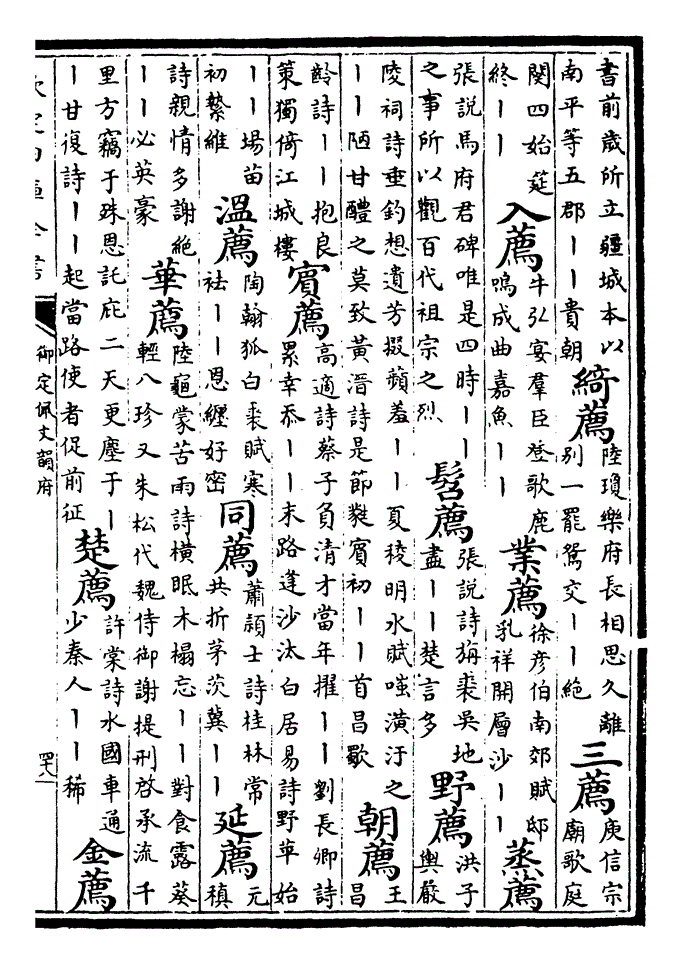 書前歲所立疆城本以
南平等五郡丨丨貴朝
綺薦
陸瓊樂府長相思久離
別一罷鴛交丨丨絕
三薦
庾信宗
廟歌庭
闋四始筵
終丨丨
入薦
牛弘宴羣臣登歌鹿
鳴成曲嘉魚丨丨
業薦
徐彥伯南郊賦邸
乳祥開層沙丨丨
蒸薦
張說馬府君碑唯是四時丨丨
之事所以觀百代祖宗之烈
髫薦
張說詩旃裘吳地
盡丨丨楚言多
野薦
洪子
輿嚴
陵祠詩垂釣想遺芳掇蘋羞丨丨夏稜明水賦嗤潢汙之
丨丨陋甘醴之莫致黃溍詩是節甤賓初丨丨首昌歜
朝薦
王
昌
齡詩丨丨抱良
策獨倚江城樓
賓薦
高適詩蔡子負清才當年擢丨丨劉長卿詩
累幸忝丨丨末路逢沙汰白居易詩野草始
丨丨場苗
初縶維
溫薦
陶翰狐白裘賦寒
袪丨丨恩纏好密
同薦
蕭頴士詩桂林常
共折茅茨冀丨丨
延薦
元
稹
詩親情多謝絕
丨丨必英豪
華薦
陸龜蒙苦雨詩橫眠木榻忘丨丨對食露葵
輕八珍又朱松代魏侍御謝提刑啓承流千
里方竊于殊恩託庇二天更塵于丨
丨甘復詩丨丨起當路使者促前征
楚薦
許棠詩水國車通
少秦人丨丨稀
金薦
欽定四庫全書
御定佩文韻府